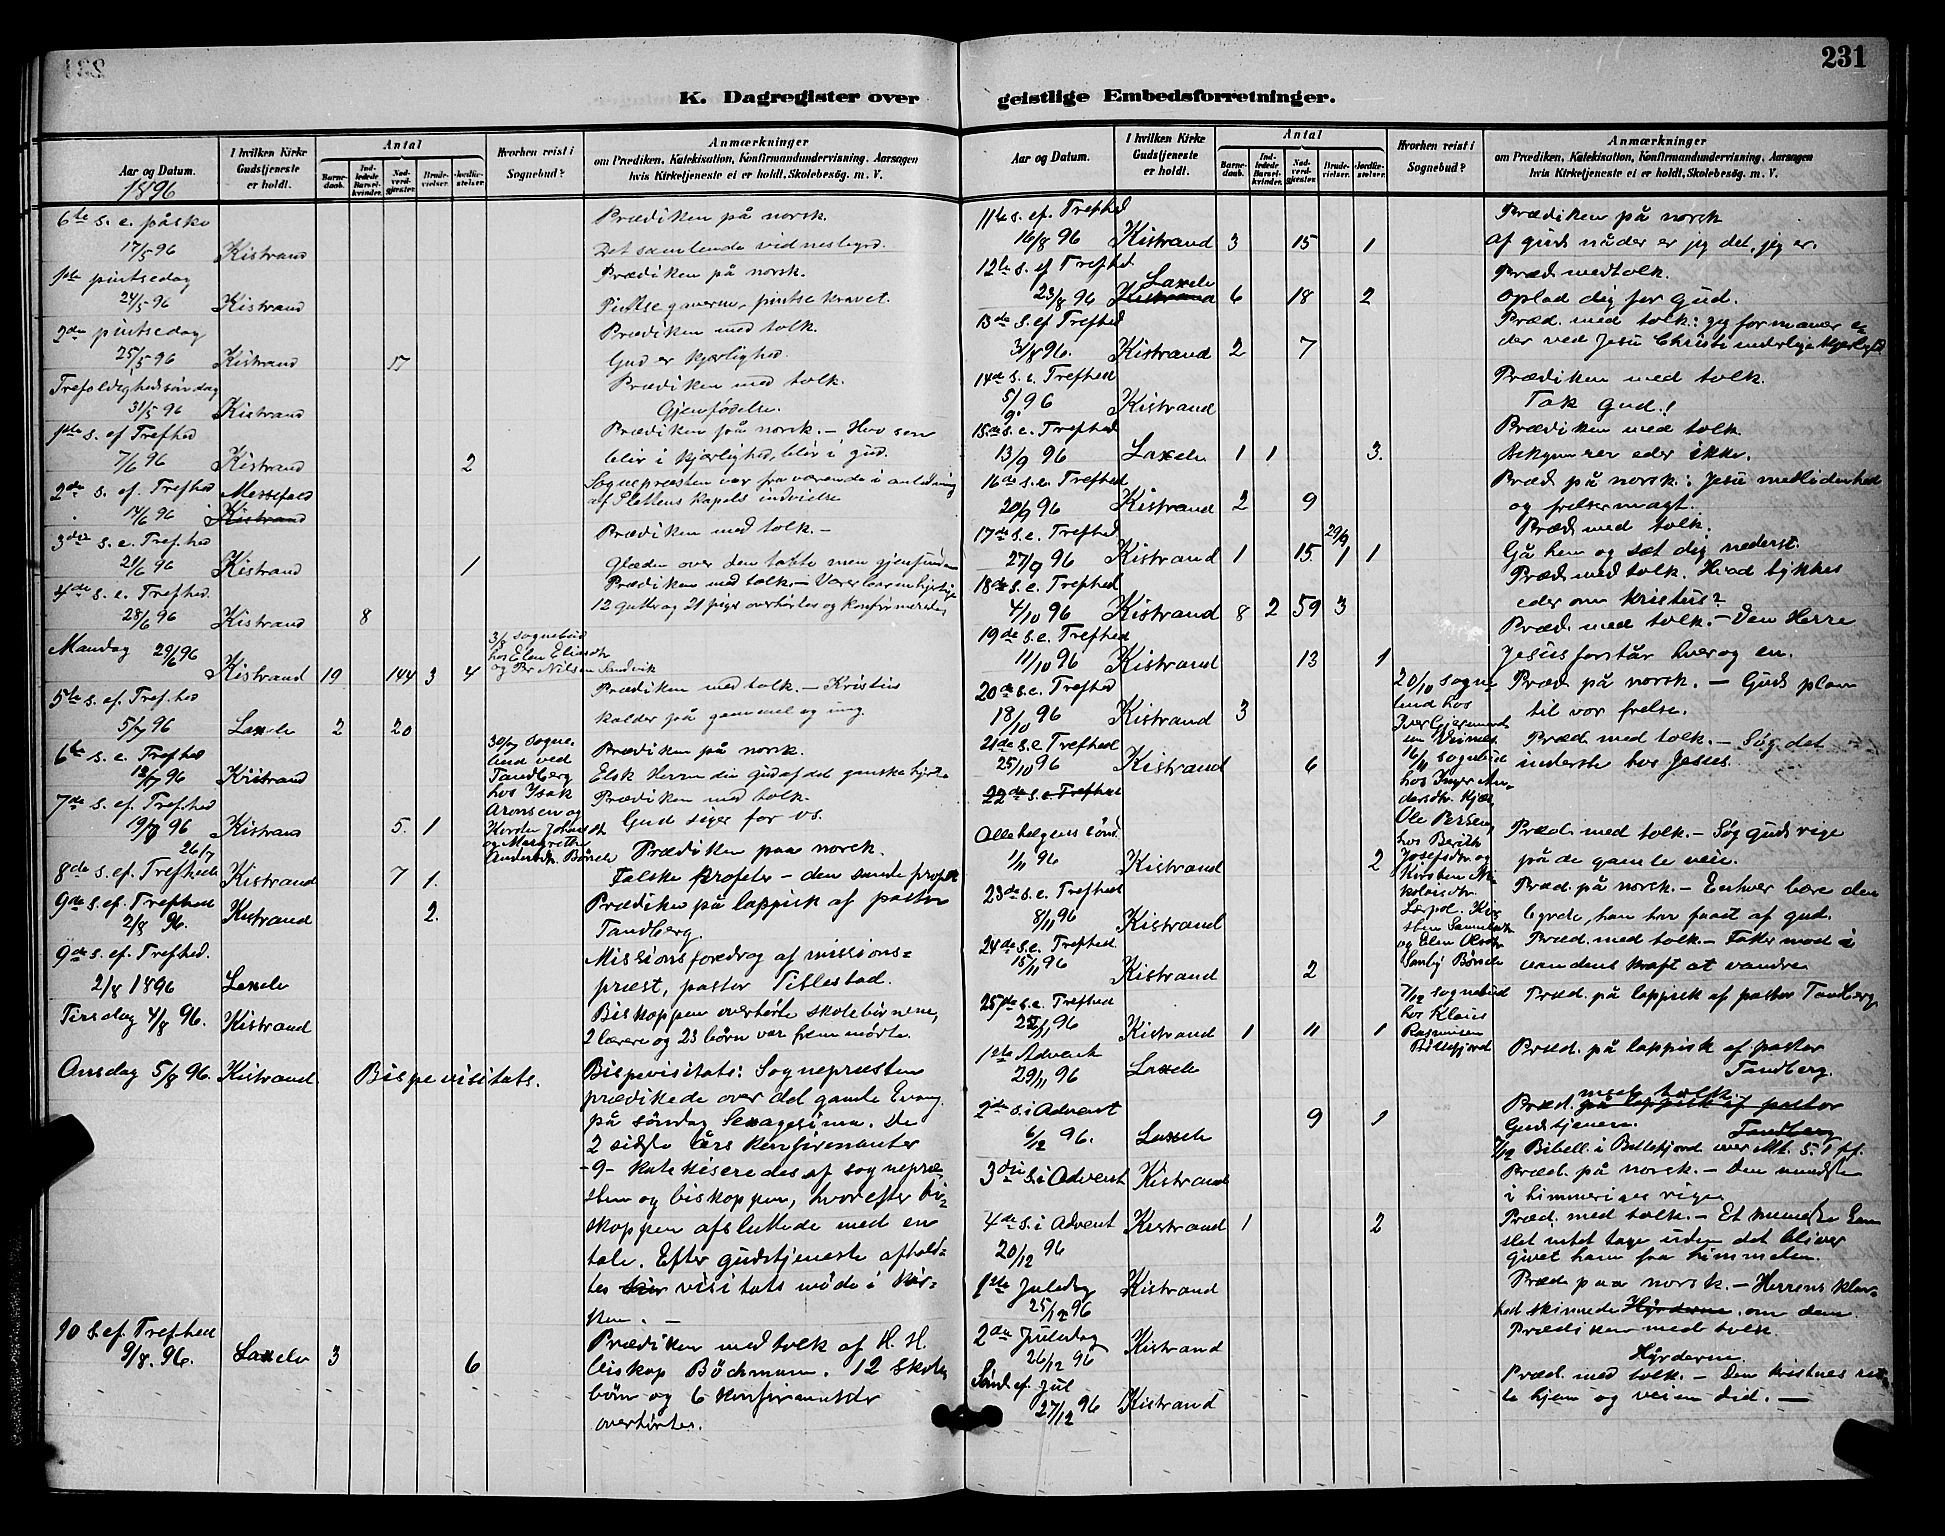 231
K. Dagregister over geistlige Embedsforretninger.
Aar og Datum.
1896
I hvilken Kirke Gudstjeneste er holdt.
Antal
Barnedaab.
Indledede Barselkvinder.
Nadverdgjester.
Brudevielser.
Jordfæstelser.
Hvorhen reist i Sognebud?
Anmærkninger
om Prædiken, Katekisation, Konfirmandundervisning, Aarsagen
hvis Kirketjeneste ei er holdt, Skolebesøg. m. V.
6te s. e. påske Prædiken på norsk.
17/5 96 Kistrand Det samlende vidnesbyrd.
1ste pintsedag Prædiken på norsk.
24/5 96 Kistrand Pintsegaverne, pintsekravet.
2den pintsedag Prædiken med tolk.
25/5 96 Kistrand 17 Gud er kjærlighed.
Trefoldighedsøndag Prædiken med tolk.
31/5 96 Kistrand Gjenfødelse.
1ste s. ef Trefhed Prædiken på norsk. – Hvo som
7/6 96 Kistrand 2 blir i kjærlighed, blir i gud.
2de s. ef. Trefhed Messefald Sognepresten var fraværende i anledning
14/6 96 Kistrand af Slettens kapels indvielse
3die s. e. Tref.hed Prædiken med tolk –
21/6 96 Kistrand 1 Glæden over den tabte men gjenfundne
4de s. e. Trefhed. Prædiken med tolk. –
28/6 96 Kistrand 8 12 gutter og 21 piger overhørtes og konfirmeredes
Mandag 29/6 96 3/7 sognebud
hos Elen Eliasdtr
Kistrand 19 144 3 4 og Per Nilsen Sandvik
5te s. ef. Tref.hed Prædiken med tolk. – Kristus
5/7 96 Laxelv 2 20 kalder på gammel og ung.
6te s. e. Trefhed 30/7 sogne- Prædiken på norsk.
bud ved
12/7 96 Kistrand Tandberg Elsk Herren din gud af det ganske hjerte
7de s. ef. Tref.hed hos Isak Prædiken med tolk.
19/7 96 Kistrand 5. 1 Aronsen og Gud siger for os.
26/7 Prædiken paa norsk.
8de s. ef. Trefhed Kistrand 7 1. Falske profeter – den sande profet
9de s. ef. Trefhed Prædiken på lappisk af pastor
2/8 96. Kistrand 2. Tandberg.
9de s. ef. Trefhed. Missionsforedrag af missions-
2/8 1896 Laxelv prest, pastor Tillestad.
Tirsdag 4/8 96. Kistrand Biskoppen overhørte skolebørnene,
2 lærere og 23 børn var fremmødte.
Onsdag 5/8 96. Kistrand Bispevisitats. Bispevisitats: Sognepresten
prædikede over det gamle Evang.
på søndag Sexagesima. De
2 sidste års konfirmanter
-9- katekiseredes af sognepre-
sten og biskoppen, hvorefter bi-
skoppen afsluttede med en
tale. Efter gudstjeneste afhold-
tes visitatsmøde i kir-
ken. –
10 s. ef. Trefhed Prædiken med tolk af H. H.
9/8. 96. Laxelv 3 6 biskop Bøckmann. 12 skole
børn og 6 konfirmanter
overhørtes.
Aar og Datum.
I hvilken Kirke Gudstjeneste er holdt.
Antal
Barnedaab.
Indledede Barselkvinder.
Nadverdgjester.
Brudevielser.
Jordfæstelser.
Hvorhen reist i Sognebud?
Anmærkninger
om Prædiken, Katekisation, Konfirmandundervisning, Aarsagen
hvis Kirketjeneste ei er holdt, Skolebesøg. m. V.
11te s. ef. Trefhed Prædiken på norsk
16/8 96 Kistrand 3 15 1 Af guds nåde er jeg det, jeg er.
12te s. ef Trefhed Laxelv Præd. med tolk.
23/8 96 Kistrand 6 18 2 Oplad dig for Gud.
13de s. ef Trefhed Præd. med tolk: jeg formaner e-
31/8 96. Kistrand 2 7 der ved Jesu Christi inderlige kjærlighed
14de s. e. Trefhed Prædiken med tolk.
5/9 96 Kistrand Tak Gud!
15de s. e. Trefhed Prædiken med tolk
13/9 96 Laxelv 1 1 3. Bekymrer eder ikke.
16de s. e. Trefhed Præd på norsk: Jesu medlidenhed
20/9 96 Kistrand 2 9 og frelsermagt.
17de s. e. Trefhed 29/9 Præd. med tolk.
27/9 96 Kistrand 1 15. 1 1 Gå hen og sæt dig nederst.
18de s. e. Trefhed Præd. med tolk. Hvad tykkes
4/10 96 Kistrand 8 2 59 3 eder om Kristus?
19de s. e. Trefhed Præd. med tolk. – Den Herre
11/10 96 Kistrand 13 1 Jesus forstår hver og en.
20de s. e. Trefhed 20/10 sogne- Præd. på norsk. – Guds plan
18/10 96 Kistrand 3 bud hos til vor frelse.
21de s. e Trefhed Præd. med tolk. – Søg det
25/10 96 Kistrand 6 16/11 sognebud inderste hos Jesus.
22de s. e Trefhed
Allehelgens sønd. Ole Persen, Præd. med tolk. – Søg guds rige
1/11 96 Kistrand 2 hos Berith Josefsdtr og på de gamle veie.
23de s. e. Trefhed Kirsten Ni- Præd. på norsk. – Enhver bære den
8/11 96 Kistrand kolaisdtr. byrde, han har faaet af gud.
24de s. e. Trefhed og Elen Olsdtr Præd. med tolk. –
15/11 96 Kistrand 2 åndens kraft at vandre
25de s. e Trefhed 7/12 sognebud Præd. på lappisk af pastor Tandberg
22/11 96 Kistrand 1 11 1 hos Klaus Rasmusen Billefjord
1ste Advent Præd. på lappisk af pastor
29/11 96 Laxelv Tandberg.
2den s. i Advent Præd. med tolk. på lappisk af pastor Tandberg
6/12 96. Laxelv 9 1 Gudstjenere.
7/12 Bibell. i Billefjord over Mt. 5. 1 ff.
3die s. i Advent Kistrand Præd. på norsk. – Den mindste
i himmeriges rige
4de s. i Advent Kistrand 1 2 Præd. med tolk. – Et menneske kan
20/12 96 slet intet tage uden det bliver
givet ham fra himmelen.
1ste Juledag Kistrand Præd paa norsk. – Herrens klar-
25/12 96 hed skinnede Hyrderne. om dem
2den Juledag Kistrand Prædiken med tolk.
26/12 96 Hyrderne.
Sønd. ef. Jul Præd. med tolk. – Den kristnes ret-
27/12 96 Kistrand te hjem og veien did. –